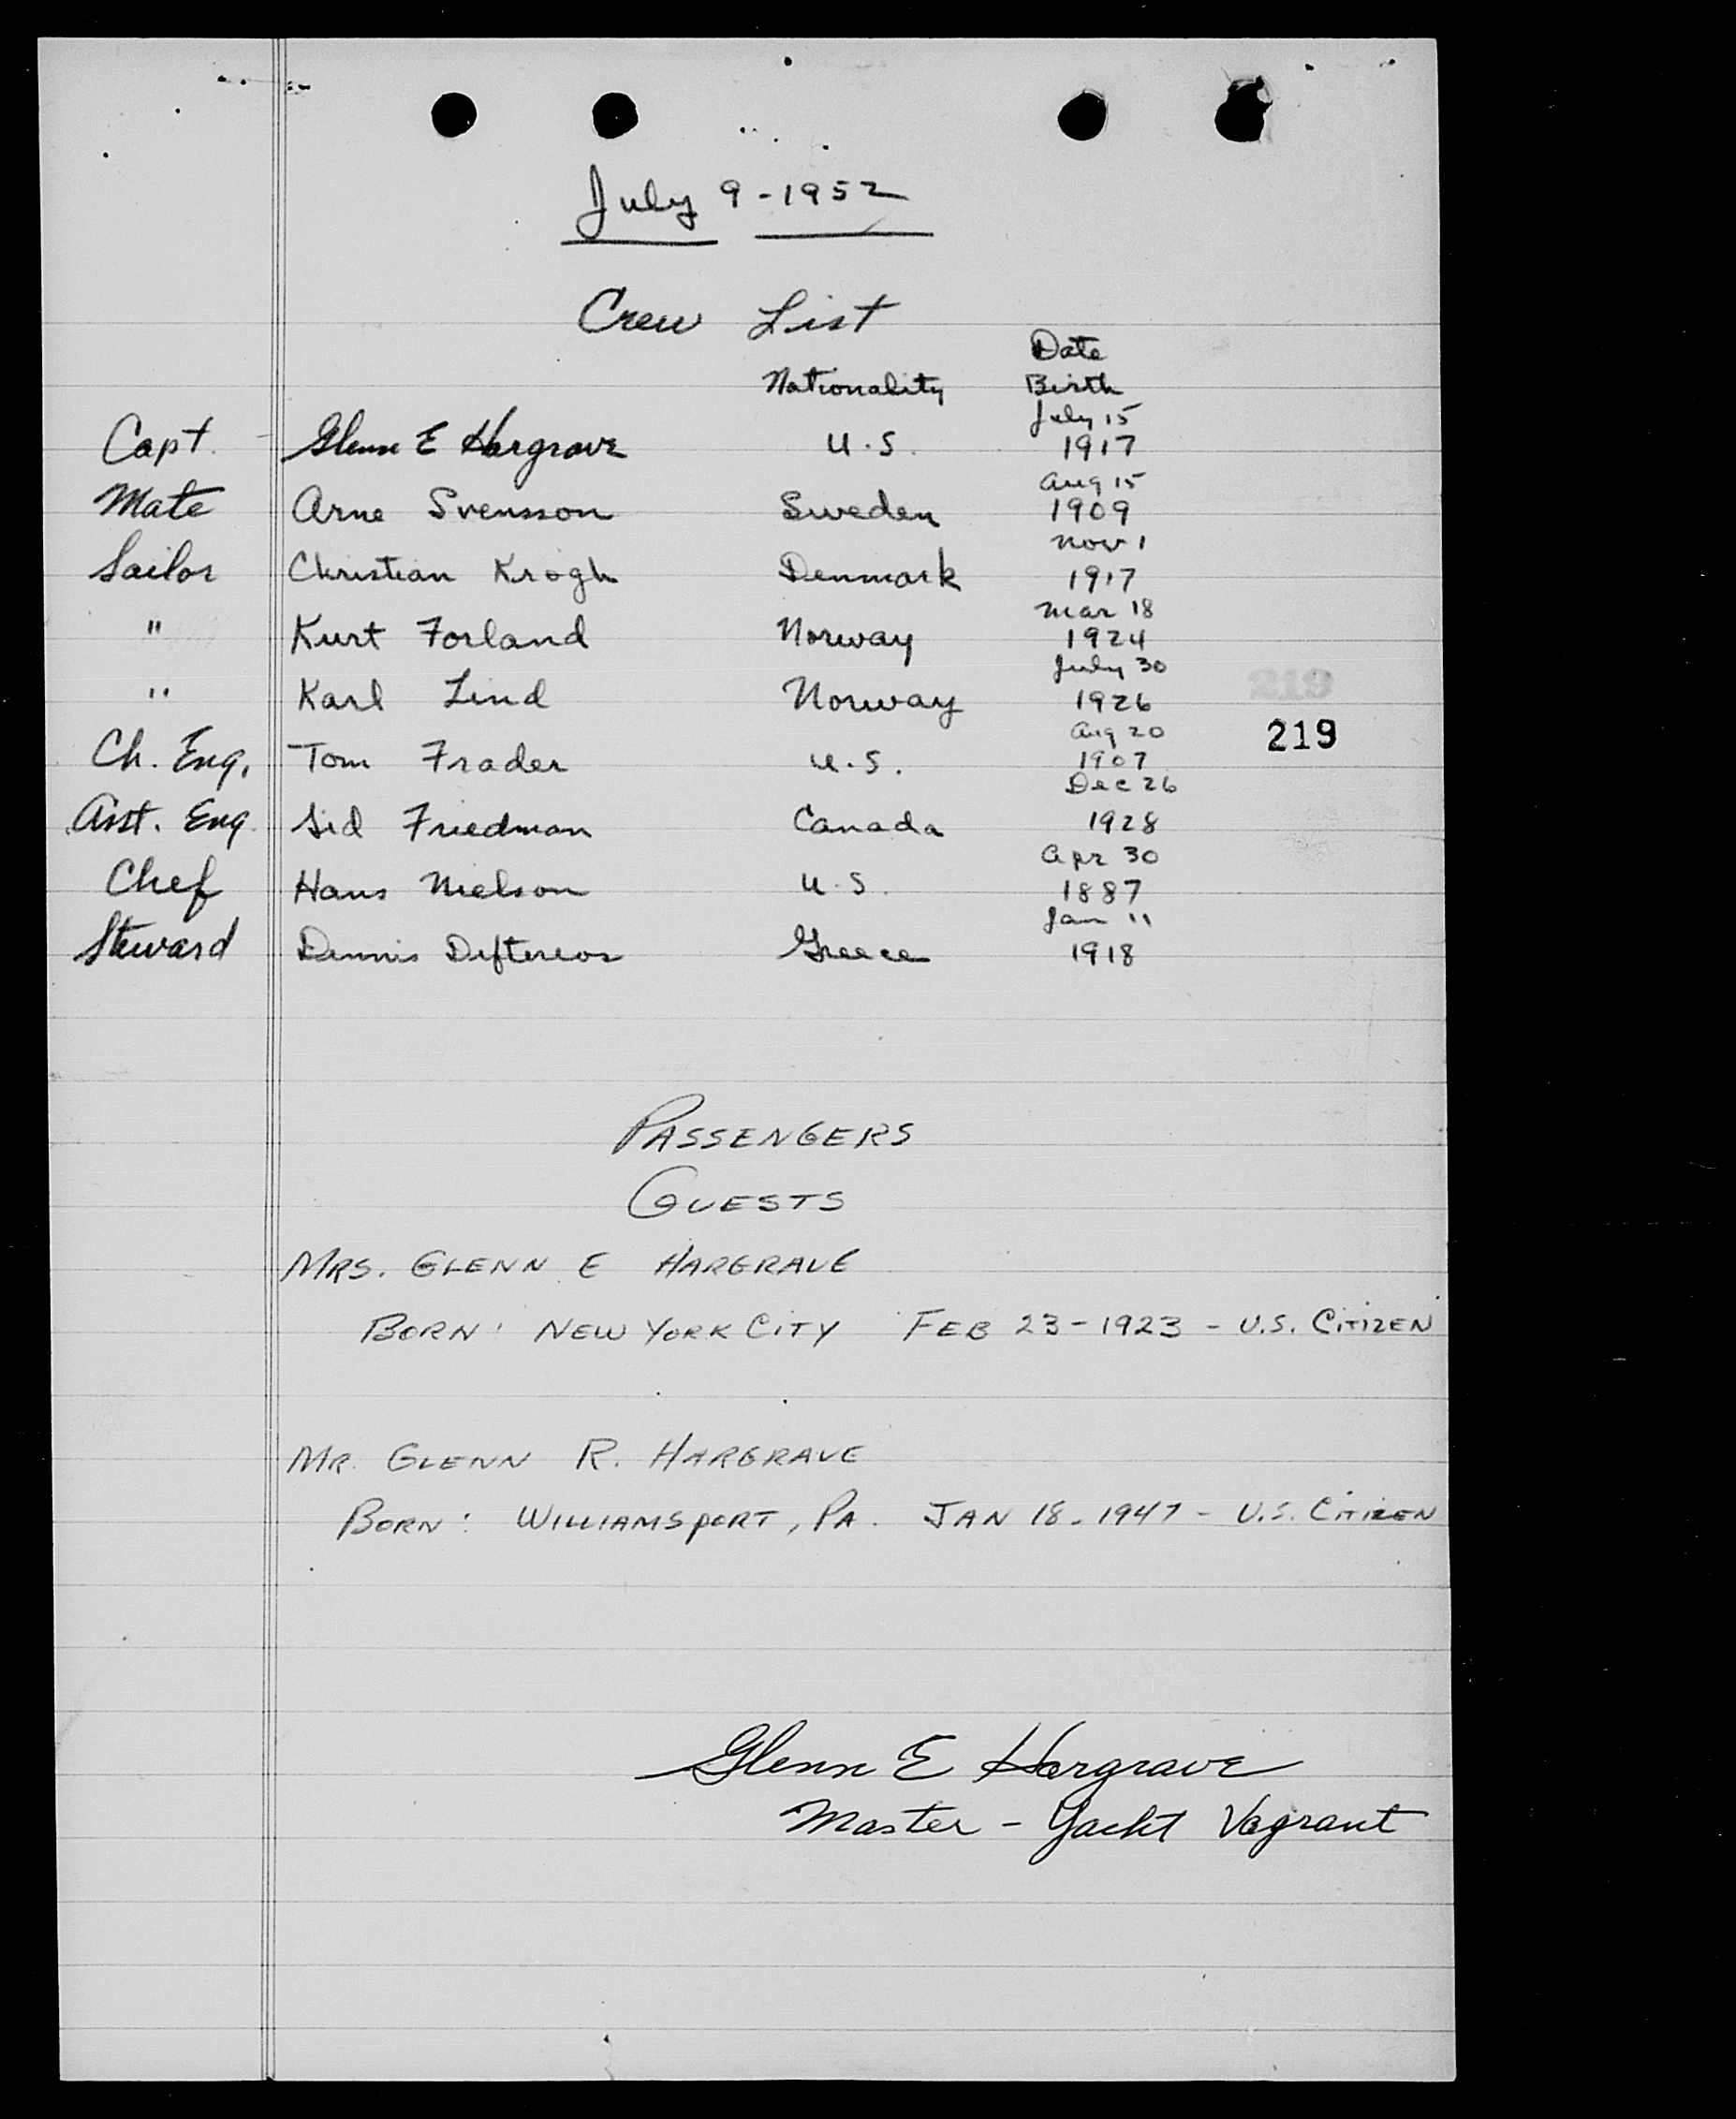 July 9-1952
Crew List
Date
Nationality Birth
July 15
Capt. Glenn E Hargrave U.S. 1917
Aug 15
Mate Arne Svensson Sweden 1909
Nov 1
Sailor Christian Krogh Denmark 1917
Mar 18
" Kurt Forland Norway 1924
July 30
" Karl Lind Norway 1926
Aug 20
219
219
Ch. Eng. Tom Frader U.S. 1907
Dec 26
Asst. Eng. Sid Friedman Canada 1928
Apr 30
Chef Hans Nielson U.S. 1887
Jan 11
Steward Dennis Deftereos Greece 1918
PASSENGERS
GUESTS
MRS. GLENN E HARGRAVE
BORN: NEW YORK CITY FEB 23-1923 - U.S. CITIZEN
MR. GLENN R. HARGRAVE
BORN: WILLIAMSPORT, PA. JAN 18-1947 - U.S. CITIZEN
Glenn E Hargrave
Master - Yacht Vagrant